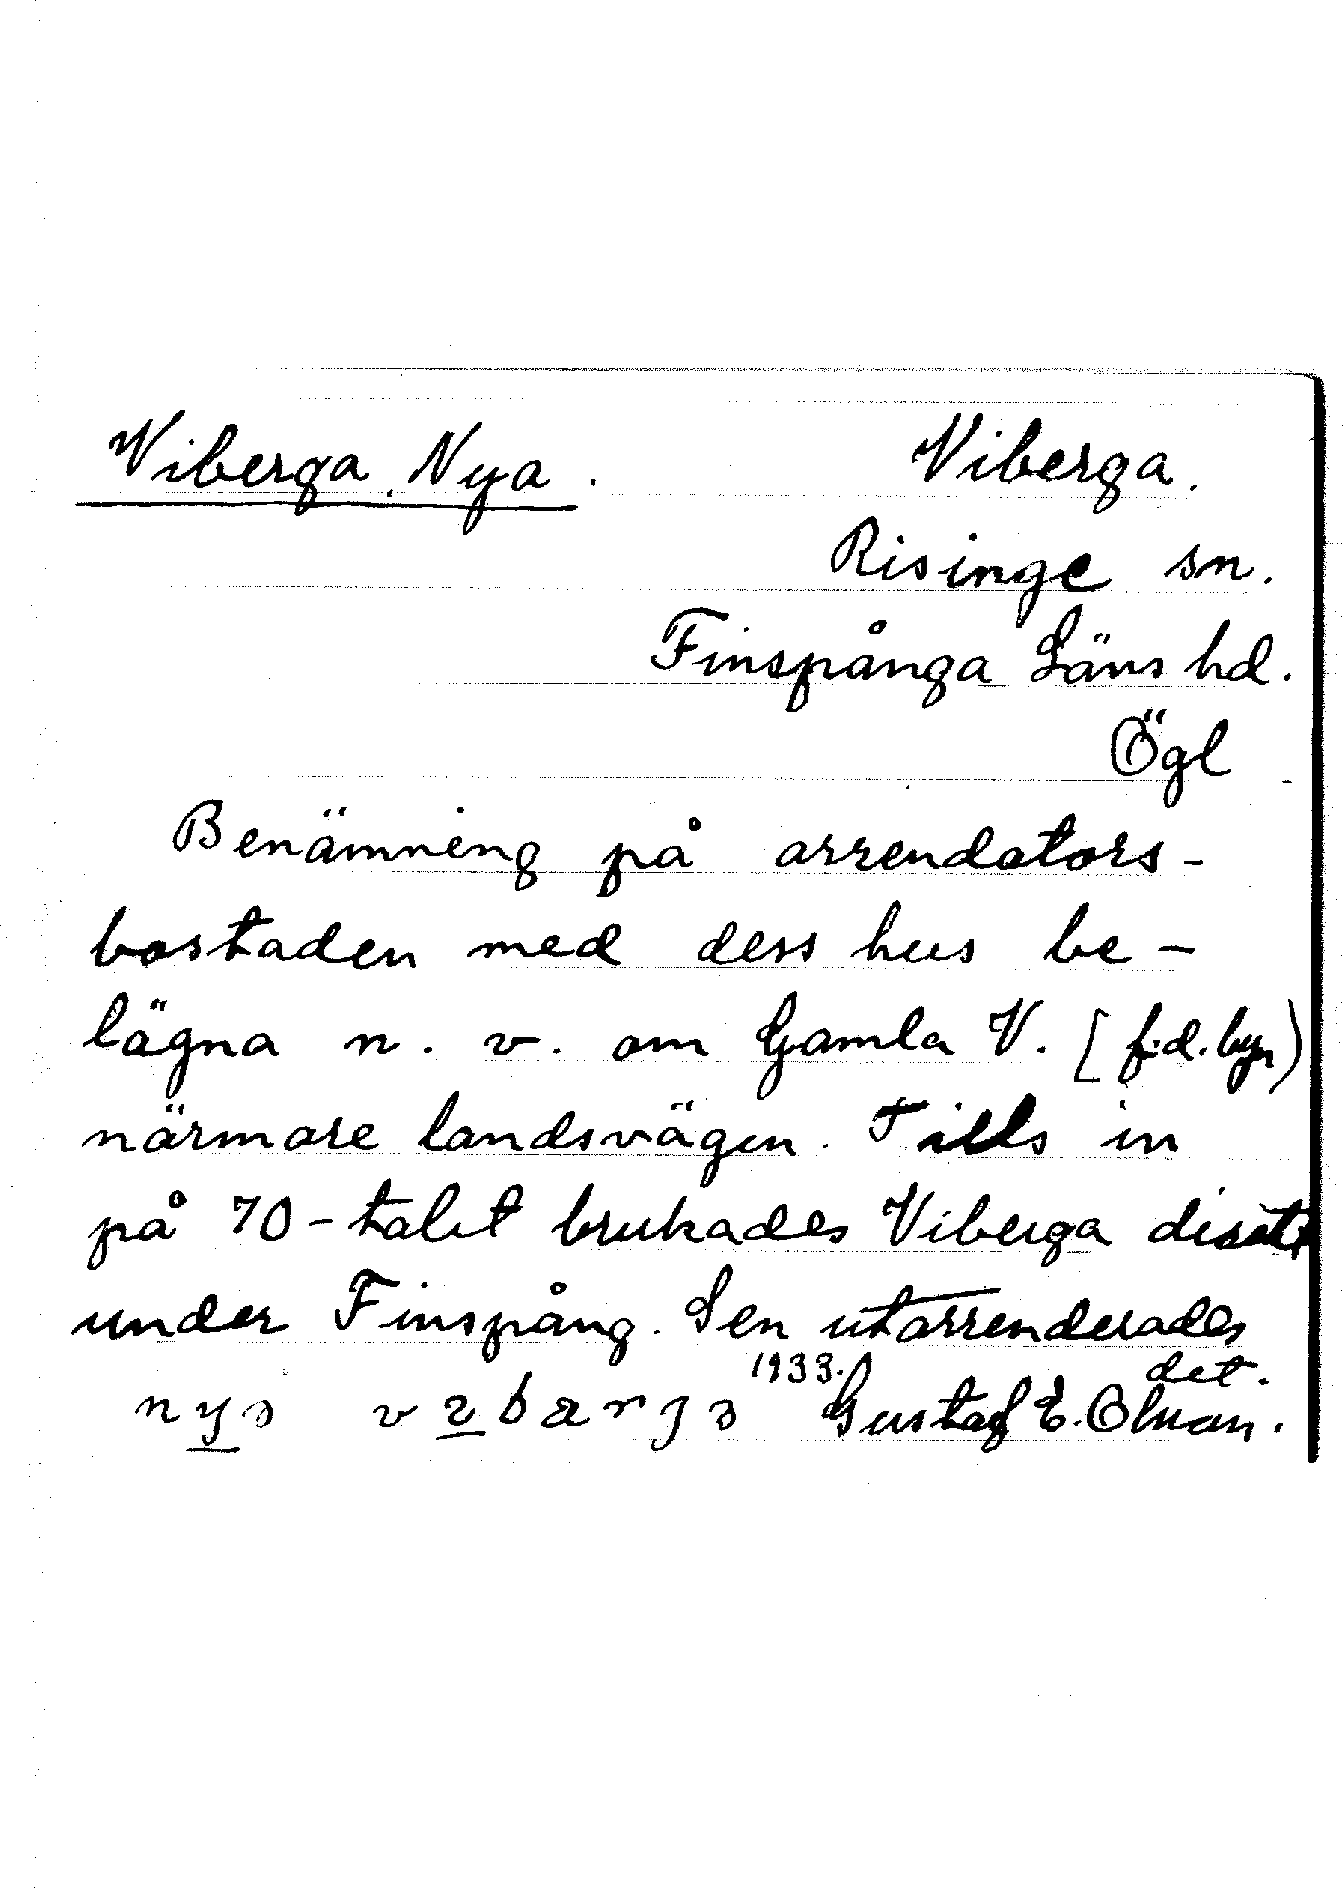 Viberga, Nya. Viberga.
Risinge sn.
Finspånga Läns hd.
Ögl
Benämning på arrendators-
bostaden med dess hus be-
lägna n. v. om Gamla V. [f.d. byn)
närmare landsvägen. Tills in
på 70-talet brukades Viberga direkt
under Finspång. Sen utarrenderades
1933. det.
Gustaf E. Olman.